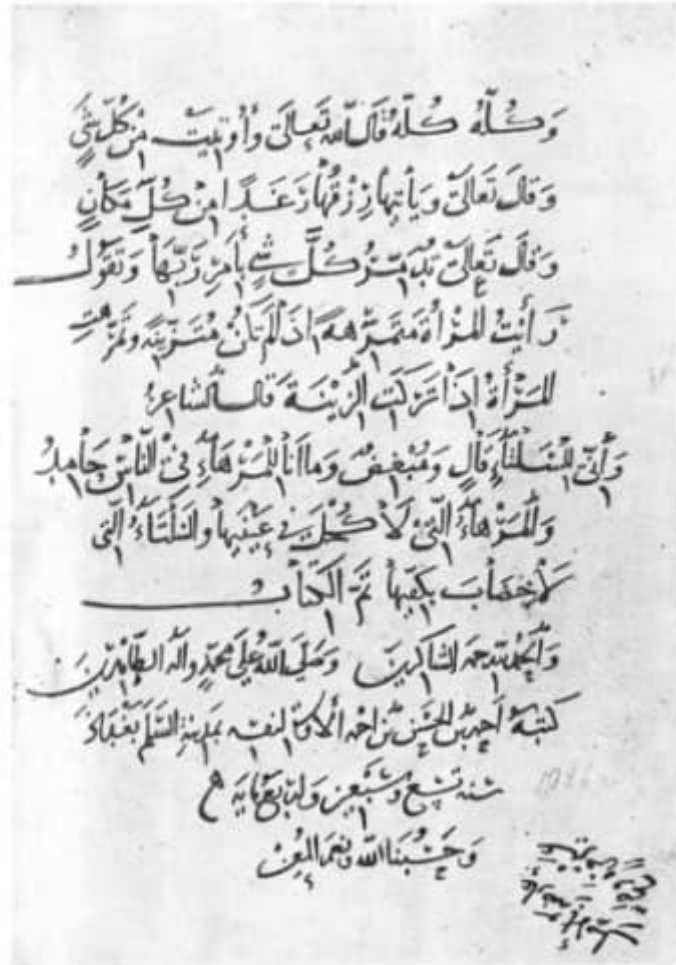 وَكُلُّهُ كُلّهُ قَالَ اللّه تَعَالَى وَأُوتِيَتْ مِنْ كُلّ شَيْءٍ
وَقَالَ تَعَالَى وَيَأْتِيهَا رِزْقُهَا رَغَدًا مِنْ كُلِّ مَكَانٍ
وَقَالَ تَعَالَى تُدَمِّرُ كُلَّ شَيْءٍ بِأَمْرِ رَبِّهَا وَتَقُولُ
رَأَيْتُ الْمَرْأَةَ مُتَمَرِّهَةً إِذَا لَمْ تَكُنْ مُتَزَيِّنَةً وَمَرِهَتِ
الْمَرْأَةُ إِذَا تَرَكَتِ الزِّيْنَةَ قَالَ الشَّاعِرُ
وَأَنِّي السَّلْتَاءَ قَالٍ وَمُبْغِضٌ وَمَا أَنَا لِلْمَرْهَاءِ فِي النَّاسِ حَامِدُ
وَالْمَرْهَاءُ الَّتِي لَا كُحْلَ فِي عَيْنَيْهَا وَالسَّلْتَاءُ الَّتِي
لَا خِضَابَ بِكَفَّيْهَا تَمَّ الْكِتَابُ
وَالْحَمْدُ لِلّهِ حَمْدَ الشَّاكِرِينَ وَصَلَّى اللّهُ عَلَى مُحَمَّدٍ وَآلِهِ الطَّاهِرِينَ
كَتَبَهُ أَحْمَدُ بْنُ الْحَسَنِ بْنِ لِنَفْسِهِ بِمَدِينَةِ السَّلَمِ بَغْدَادَ
سَنَةَ تِسْعٍ وَسَبْعِينَ وَأَرْبَعِمِايَةٍ
وَحَسْبُنَا اللّهُ وَنِعْمَ الْمُعِينُ